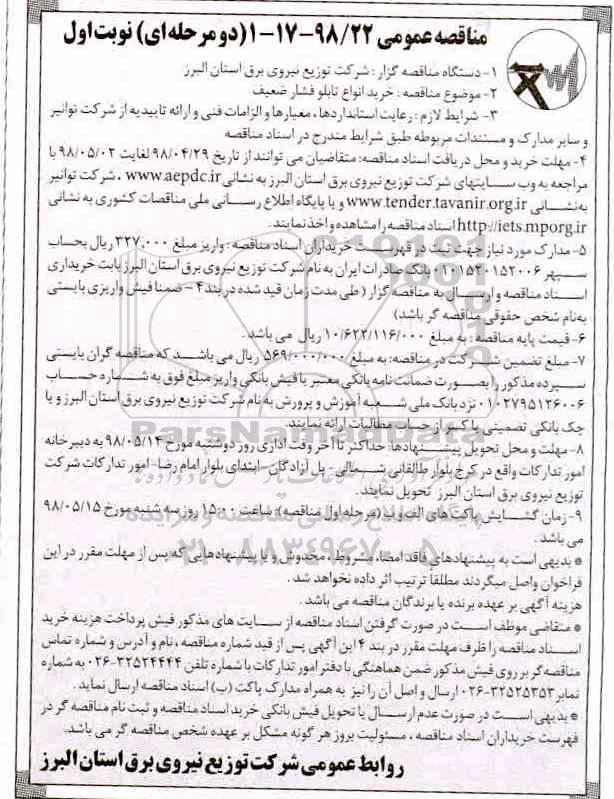 مناقصه عمومی ۹۸/۲۲-۱۷-۱(دو مرحله ای) نوبت اول
۱- دستگاه مناقصه گزار : شرکت توزیع نیروی برق استان البرز
۲- موضوع مناقصه : خرید انواع تابلو فشار ضعیف
۳- شرایط لازم : رعایت استانداردها ، معیارها و الزامات فنی و ارائه تاییدیه از شرکت توانیر
و سایر مدارک و مستندات مربوطه طبق شرایط مندرج در اسناد مناقصه
۴- مهلت خرید و محل دریافت اسناد مناقصه: متقاضیان می توانند از تاریخ ۹۸/۰۴/۲۹ لغایت ۹۸/۰۵/۰۳ با
مراجعه به وب سایتهای شرکت توزیع نیروی برق استان البرز به نشانی www.aepdc.ir ، شرکت توانیر
به نشانی www.tender.tavanir.org.ir و یا پایگاه اطلاع رسانی ملی مناقصات کشوری به نشانی
http://iets.mporg.ir اسناد مناقصه را مشاهده و اخذ نمایند.
۵- مدارک مورد نیاز جهت ثبت در فهرست خریداران اسناد مناقصه : واریز مبلغ ۳۲۷,۰۰۰ ریال بحساب
سپهر ۰۱۰۱۵۳۰۱۵۲۰۰۶ بانک صادرات ایران به نام شرکت توزیع نیروی برق استان البرز بابت خریداری
اسناد مناقصه و ارسال به مناقصه گزار ( طی مدت زمان قید شده در بند ۴ - ضمنا فیش واریزی بایستی
به نام شخص حقوقی مناقصه گر باشد)
۶- قیمت پایه مناقصه : به مبلغ ۱۰/۶۲۲/۱۱۶/۰۰۰ ریال می باشد .
۷- مبلغ تضمین شرکت در مناقصه: به مبلغ ۵۶۹/۰۰۰/۰۰۰ ریال می باشد که مناقصه گران بایستی
سپرده مذکور را بصورت ضمانت نامه بانکی معتبر یا فیش بانکی واریز مبلغ فوق به شماره حساب
۰۱۰۲۷۹۵۱۲۶۰۰۶ نزد بانک ملی شعبه آموزش و پرورش به نام شرکت توزیع نیروی برق استان البرز و یا
چک بانکی تضمینی یا کسر از حساب مطالبات ارائه نمایند.
۸- مهلت و محل تحویل پیشنهادها: حداکثر تا آخر وقت اداری روز دوشنبه مورخ ۹۸/۰۵/۱۴ به دبیرخانه
امور تدارکات واقع در کرج بلوار طالقانی شمالی- پل آزادگان-ابتدای بلوار امام رضا- امور تدارکات شرکت
توزیع نیروی برق استان البرز تحویل نمایند.
۹- زمان گشایش پاکت های الف و ب (مرحله اول مناقصه): ساعت ۱۵:۰۰ روز سه شنبه مورخ ۹۸/۰۵/۱۵
می باشد .
* بدیهی است به پیشنهادهای فاقد امضا، مشروط ، مخدوش و یا پیشنهادهایی که پس از مهلت مقرر در این
فراخوان واصل میگردند مطلقا ترتیب اثر داده نخواهد شد .
هزینه آگهی بر عهده برنده یا برندگان مناقصه می باشد .
* متقاضی موظف است در صورت گرفتن اسناد مناقصه از سایت های مذکور فیش پرداخت هزینه خرید
اسناد مناقصه را ظرف مهلت مقرر در بند ۴ این آگهی پس از قید شماره مناقصه ، نام و آدرس و شماره تماس
مناقصه گر بر روی فیش مذکور ضمن هماهنگی با دفتر امور تدارکات با شماره تلفن ۳۲۵۲۴۴۴۴-۰۲۶ به شماره
نمابر ۳۲۵۲۵۳۵۳-۰۲۶ ارسال و اصل آن را نیز به همراه مدارک پاکت (ب) اسناد مناقصه ارسال نماید .
* بدیهی است در صورت عدم ارسال یا تحویل فیش بانکی خرید اسناد مناقصه و ثبت نام مناقصه گر در
فهرست خریداران اسناد مناقصه ، مسئولیت بروز هر گونه مشکل بر عهده شخص مناقصه گر می باشد.
روابط عمومی شرکت توزیع نیروی برق استان البرز
ParsNamadData
۰۲۱-۸۸۳۴۹۶۷۰-۵